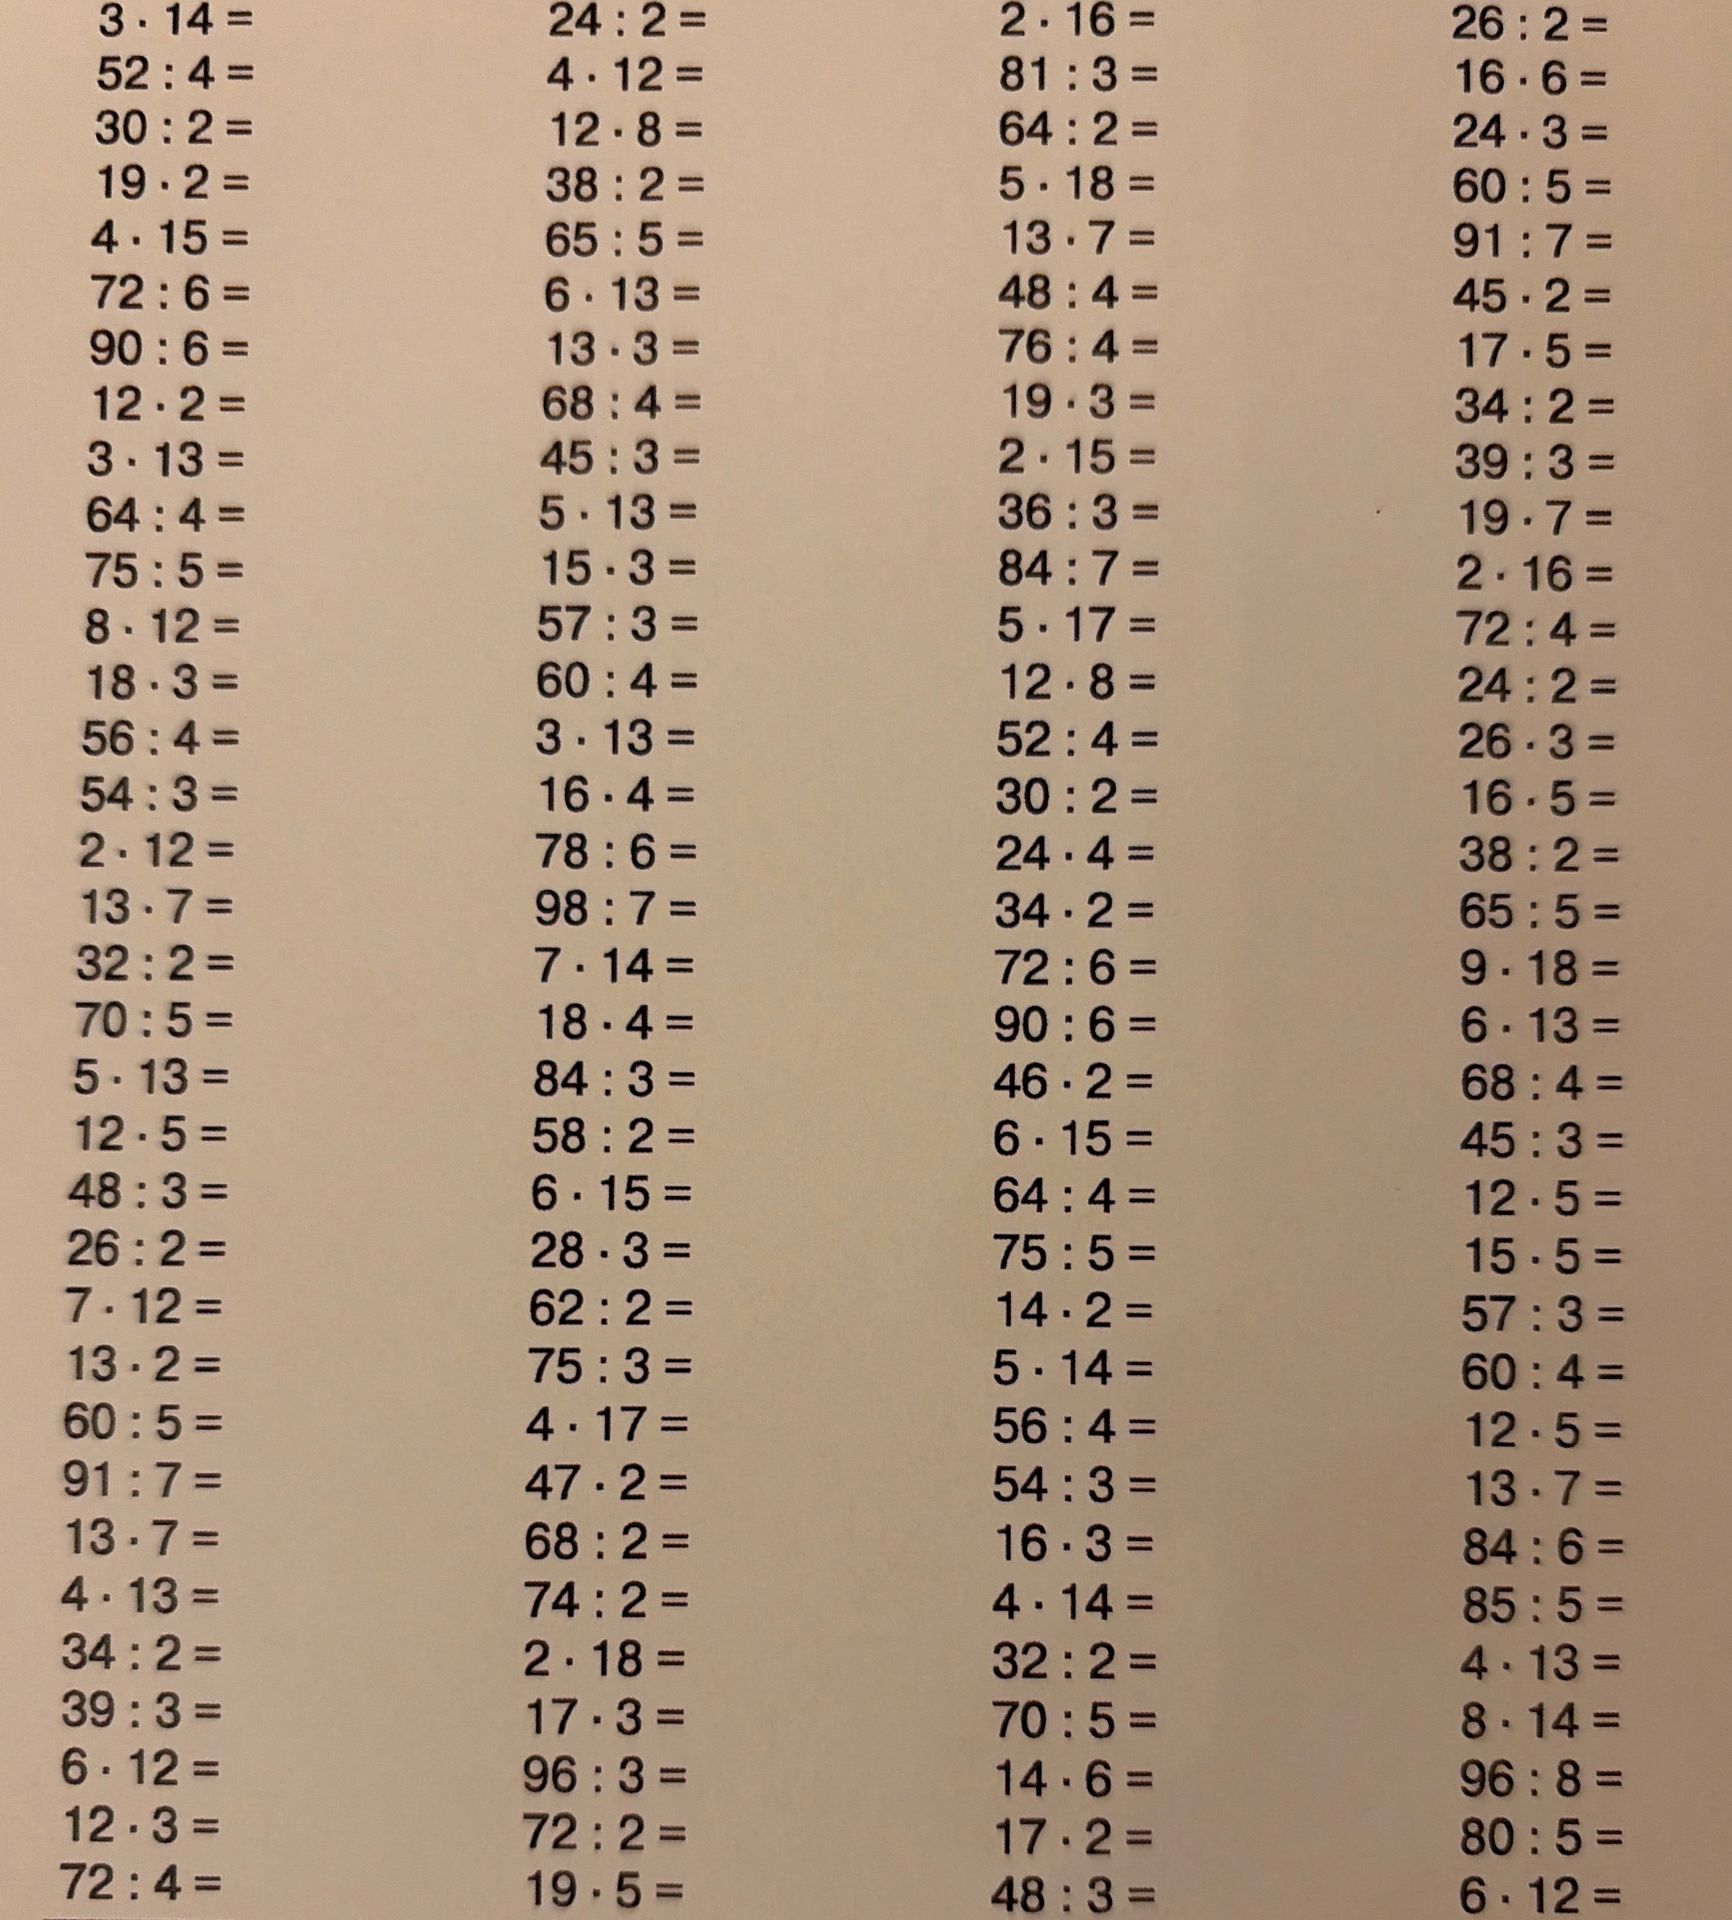 3 · 14 =
52 : 4 =
30 : 2 =
19 · 2 =
4 · 15 =
72 : 6 =
90 : 6 =
12 · 2 =
3 · 13 =
64 : 4 =
75 : 5 =
8 · 12 =
18 · 3 =
56 : 4 =
54 : 3 =
2 · 12 =
13 · 7 =
32 : 2 =
70 : 5 =
5 · 13 =
12 · 5 =
48 : 3 =
26 : 2 =
7 · 12 =
13 · 2 =
60 : 5 =
91 : 7 =
13 · 7 =
4 · 13 =
34 : 2 =
39 : 3 =
6 · 12 =
12 · 3 =
72 : 4 =
24 : 2 =
4 · 12 =
12 · 8 =
38 : 2 =
65 : 5 =
6 · 13 =
13 · 3 =
68 : 4 =
45 : 3 =
5 · 13 =
15 · 3 =
57 : 3 =
60 : 4 =
3 · 13 =
16 · 4 =
78 : 6 =
98 : 7 =
7 · 14 =
18 · 4 =
84 : 3 =
58 : 2 =
6 · 15 =
28 · 3 =
62 : 2 =
75 : 3 =
4 · 17 =
47 · 2 =
68 : 2 =
74 : 2 =
2 · 18 =
17 · 3 =
96 : 3 =
72 : 2 =
19 · 5 =
2 · 16 =
81 : 3 =
64 : 2 =
5 · 18 =
13 · 7 =
48 : 4 =
76 : 4 =
19 · 3 =
2 · 15 =
36 : 3 =
84 : 7 =
5 · 17 =
12 · 8 =
52 : 4 =
30 : 2 =
24 · 4 =
34 · 2 =
72 : 6 =
90 : 6 =
46 · 2 =
6 · 15 =
64 : 4 =
75 : 5 =
14 · 2 =
5 · 14 =
56 : 4 =
54 : 3 =
16 · 3 =
4 · 14 =
32 : 2 =
70 : 5 =
14 · 6 =
17 · 2 =
48 : 3 =
26 : 2 =
16 · 6 =
24 · 3 =
60 : 5 =
91 : 7 =
45 · 2 =
17 · 5 =
34 : 2 =
39 : 3 =
19 · 7 =
2 · 16 =
72 : 4 =
24 : 2 =
26 · 3 =
16 · 5 =
38 : 2 =
65 : 5 =
9 · 18 =
6 · 13 =
68 : 4 =
45 : 3 =
12 · 5 =
15 · 5 =
57 : 3 =
60 : 4 =
12 · 5 =
13 · 7 =
84 : 6 =
85 : 5 =
4 · 13 =
8 · 14 =
96 : 8 =
80 : 5 =
6 · 12 =